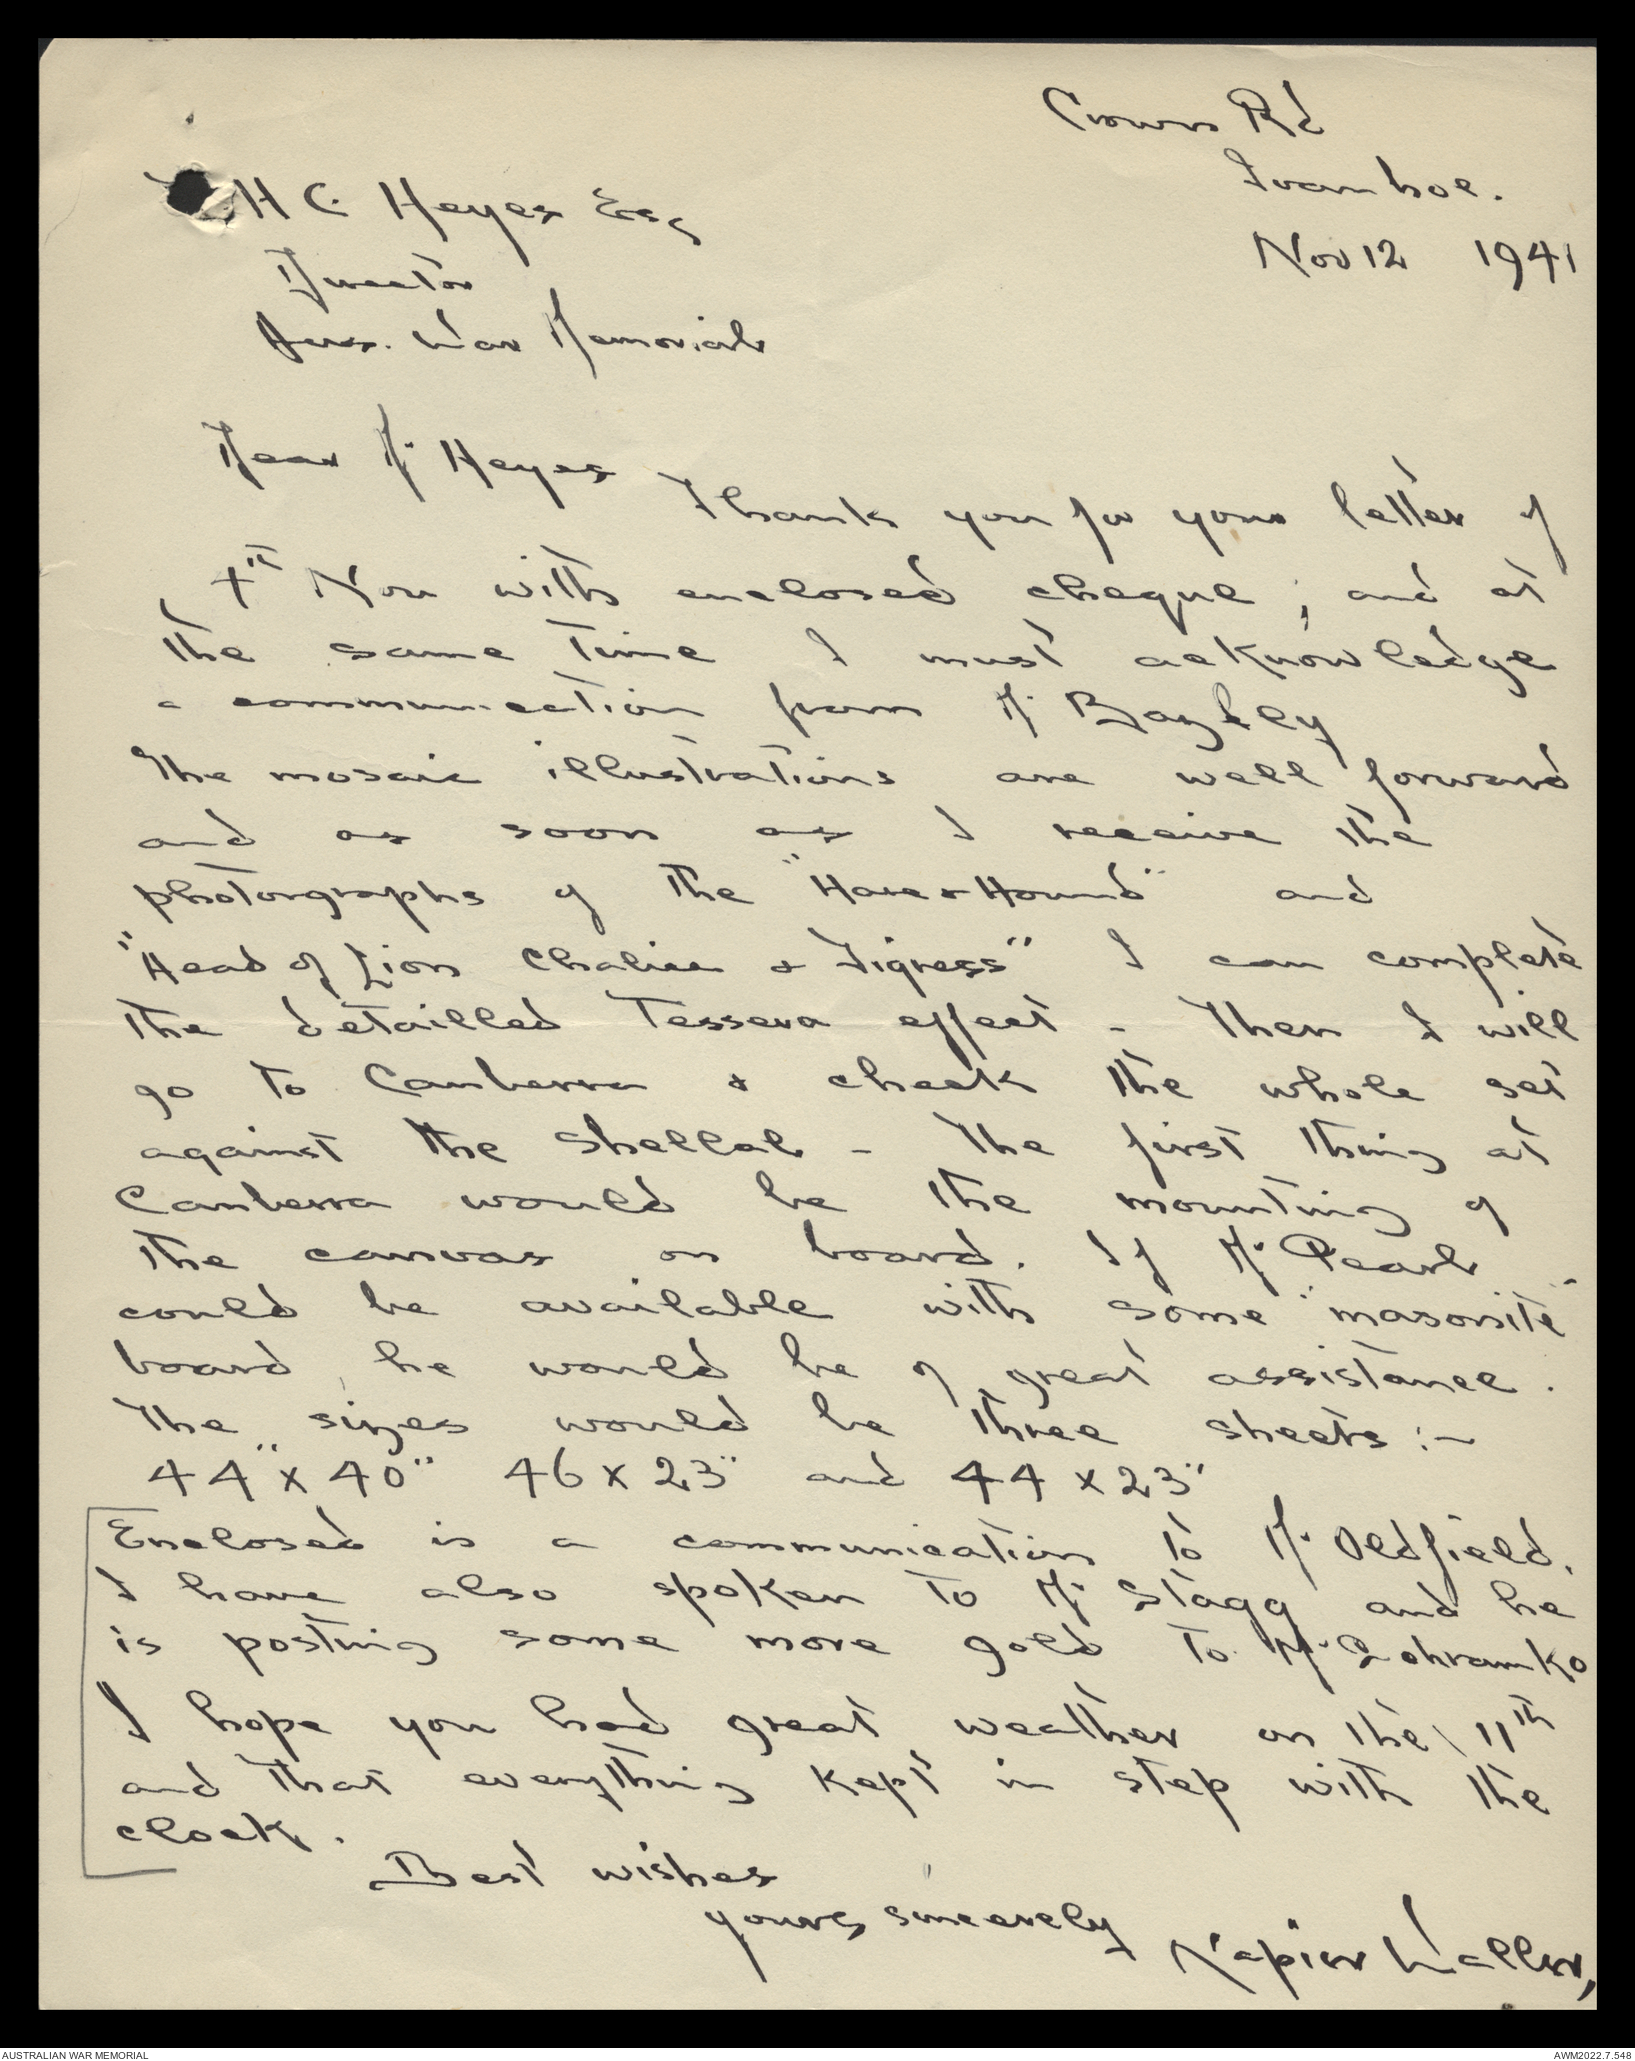 Crown Rd
Ivanhoe.
Nov 12 1941
H C Heyes Esq
Director
Aus. War Memorial
Dear Mr Heyes
Thank you for your letter of
4th Nov with enclosed cheque, and at
the same time I must acknowledge
a communication from Mr Bazley
The mosaic illustrations are well forward
and as soon as I receive the
photorgraphs of the "Hare & Hound" and
"Head of Lion Chalice & Tigress" I can complete
the detailled Tessera effect - Then I will
go to Canberra & check the whole set
against the Shellal - The first thing at
Canberra would be the mounting of
the canvas on board. If Mr Pearl
could be available with some "masonite"
board, he would be of great assistance.
The sizes would be three sheets :-
44" x 40" 46 x 23" and 44 x 23"
Enclosed is a communication to Mr Oldfield.
I have also spoken to Mr Stagg and he
is posting some more gold to Mr Schramko
I hope you had great weather on the 11th
and that everything kept in step with the
clock.
Best wishes
yours sincerely
Napier Waller,
AUSTRALIAN WAR MEMORIAL
AWM2022.7.548